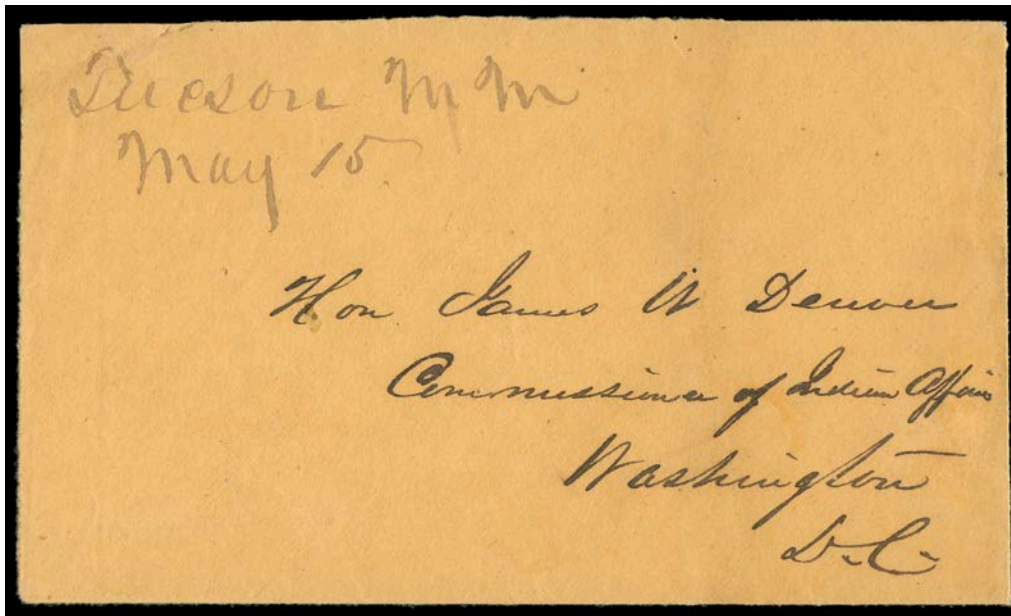 Tucson N M
May 15
Hon James W Denver
Commissioner of Indian Affairs
Washington
D.C.